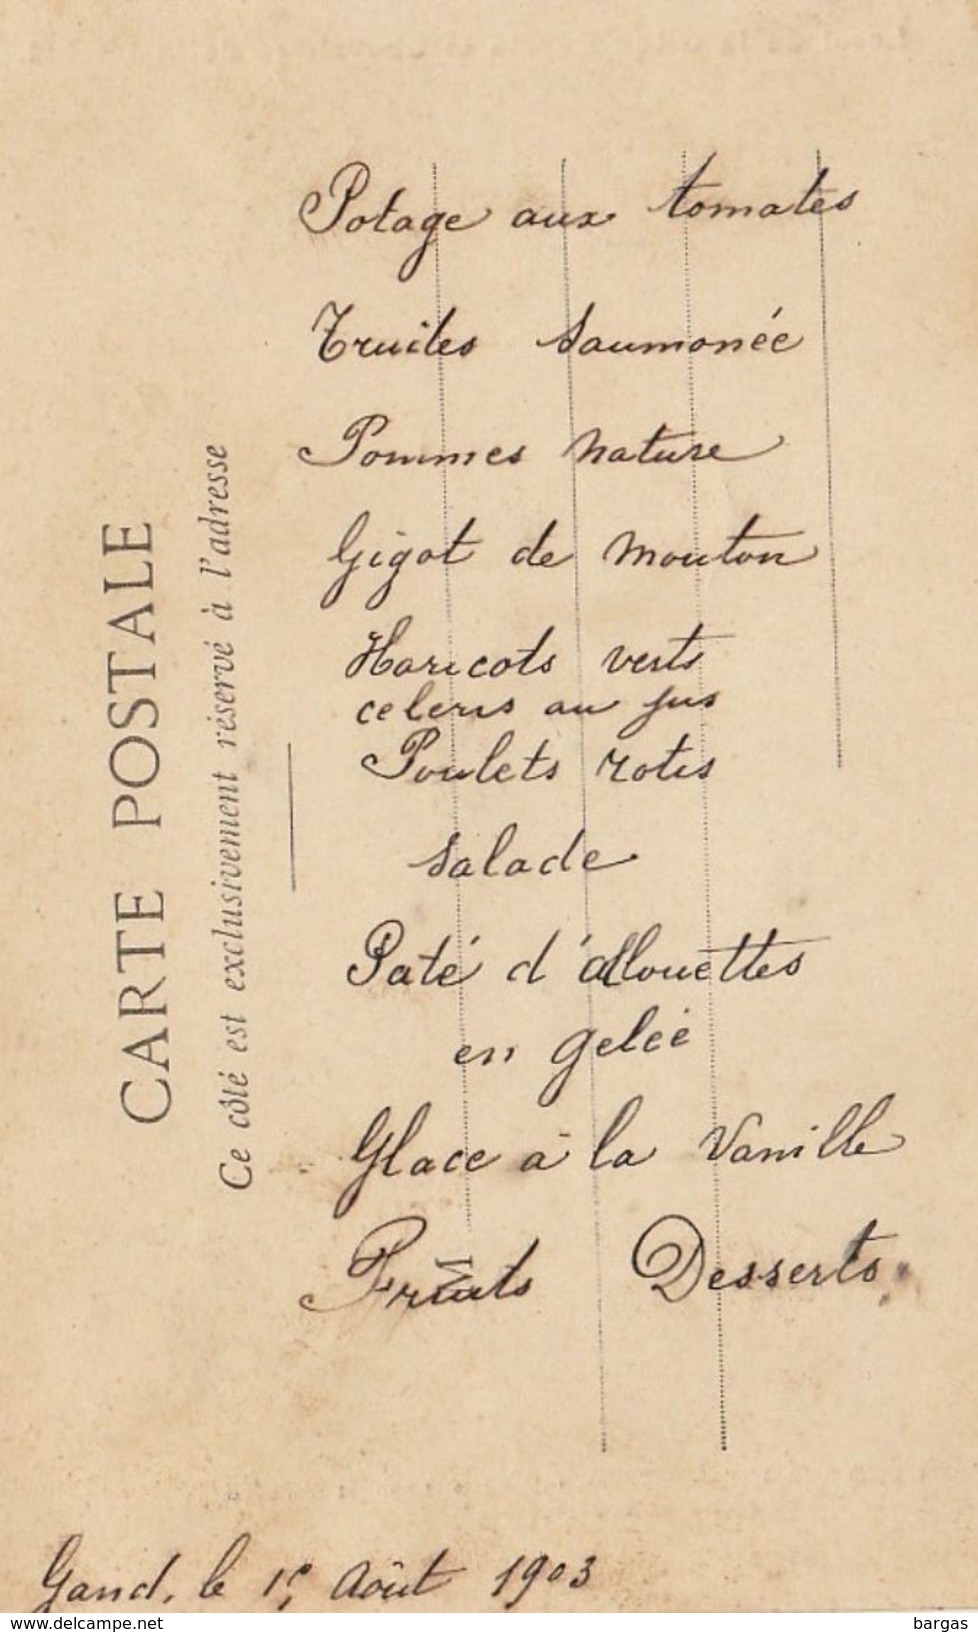 CARTE POSTALE
Ce côté est exclusivement réservé à l'adresse
Potage aux tomates
Truites Saumonée
Pommes nature
Gigot de mouton
Haricots verts
celeris au jus
Poulets rotis
Salade
Paté d'allouettes
en gelée
Glace à la Vanille
Fruits Desserts
Gand, le 1er Août 1903
www.delcampe.net
bargas